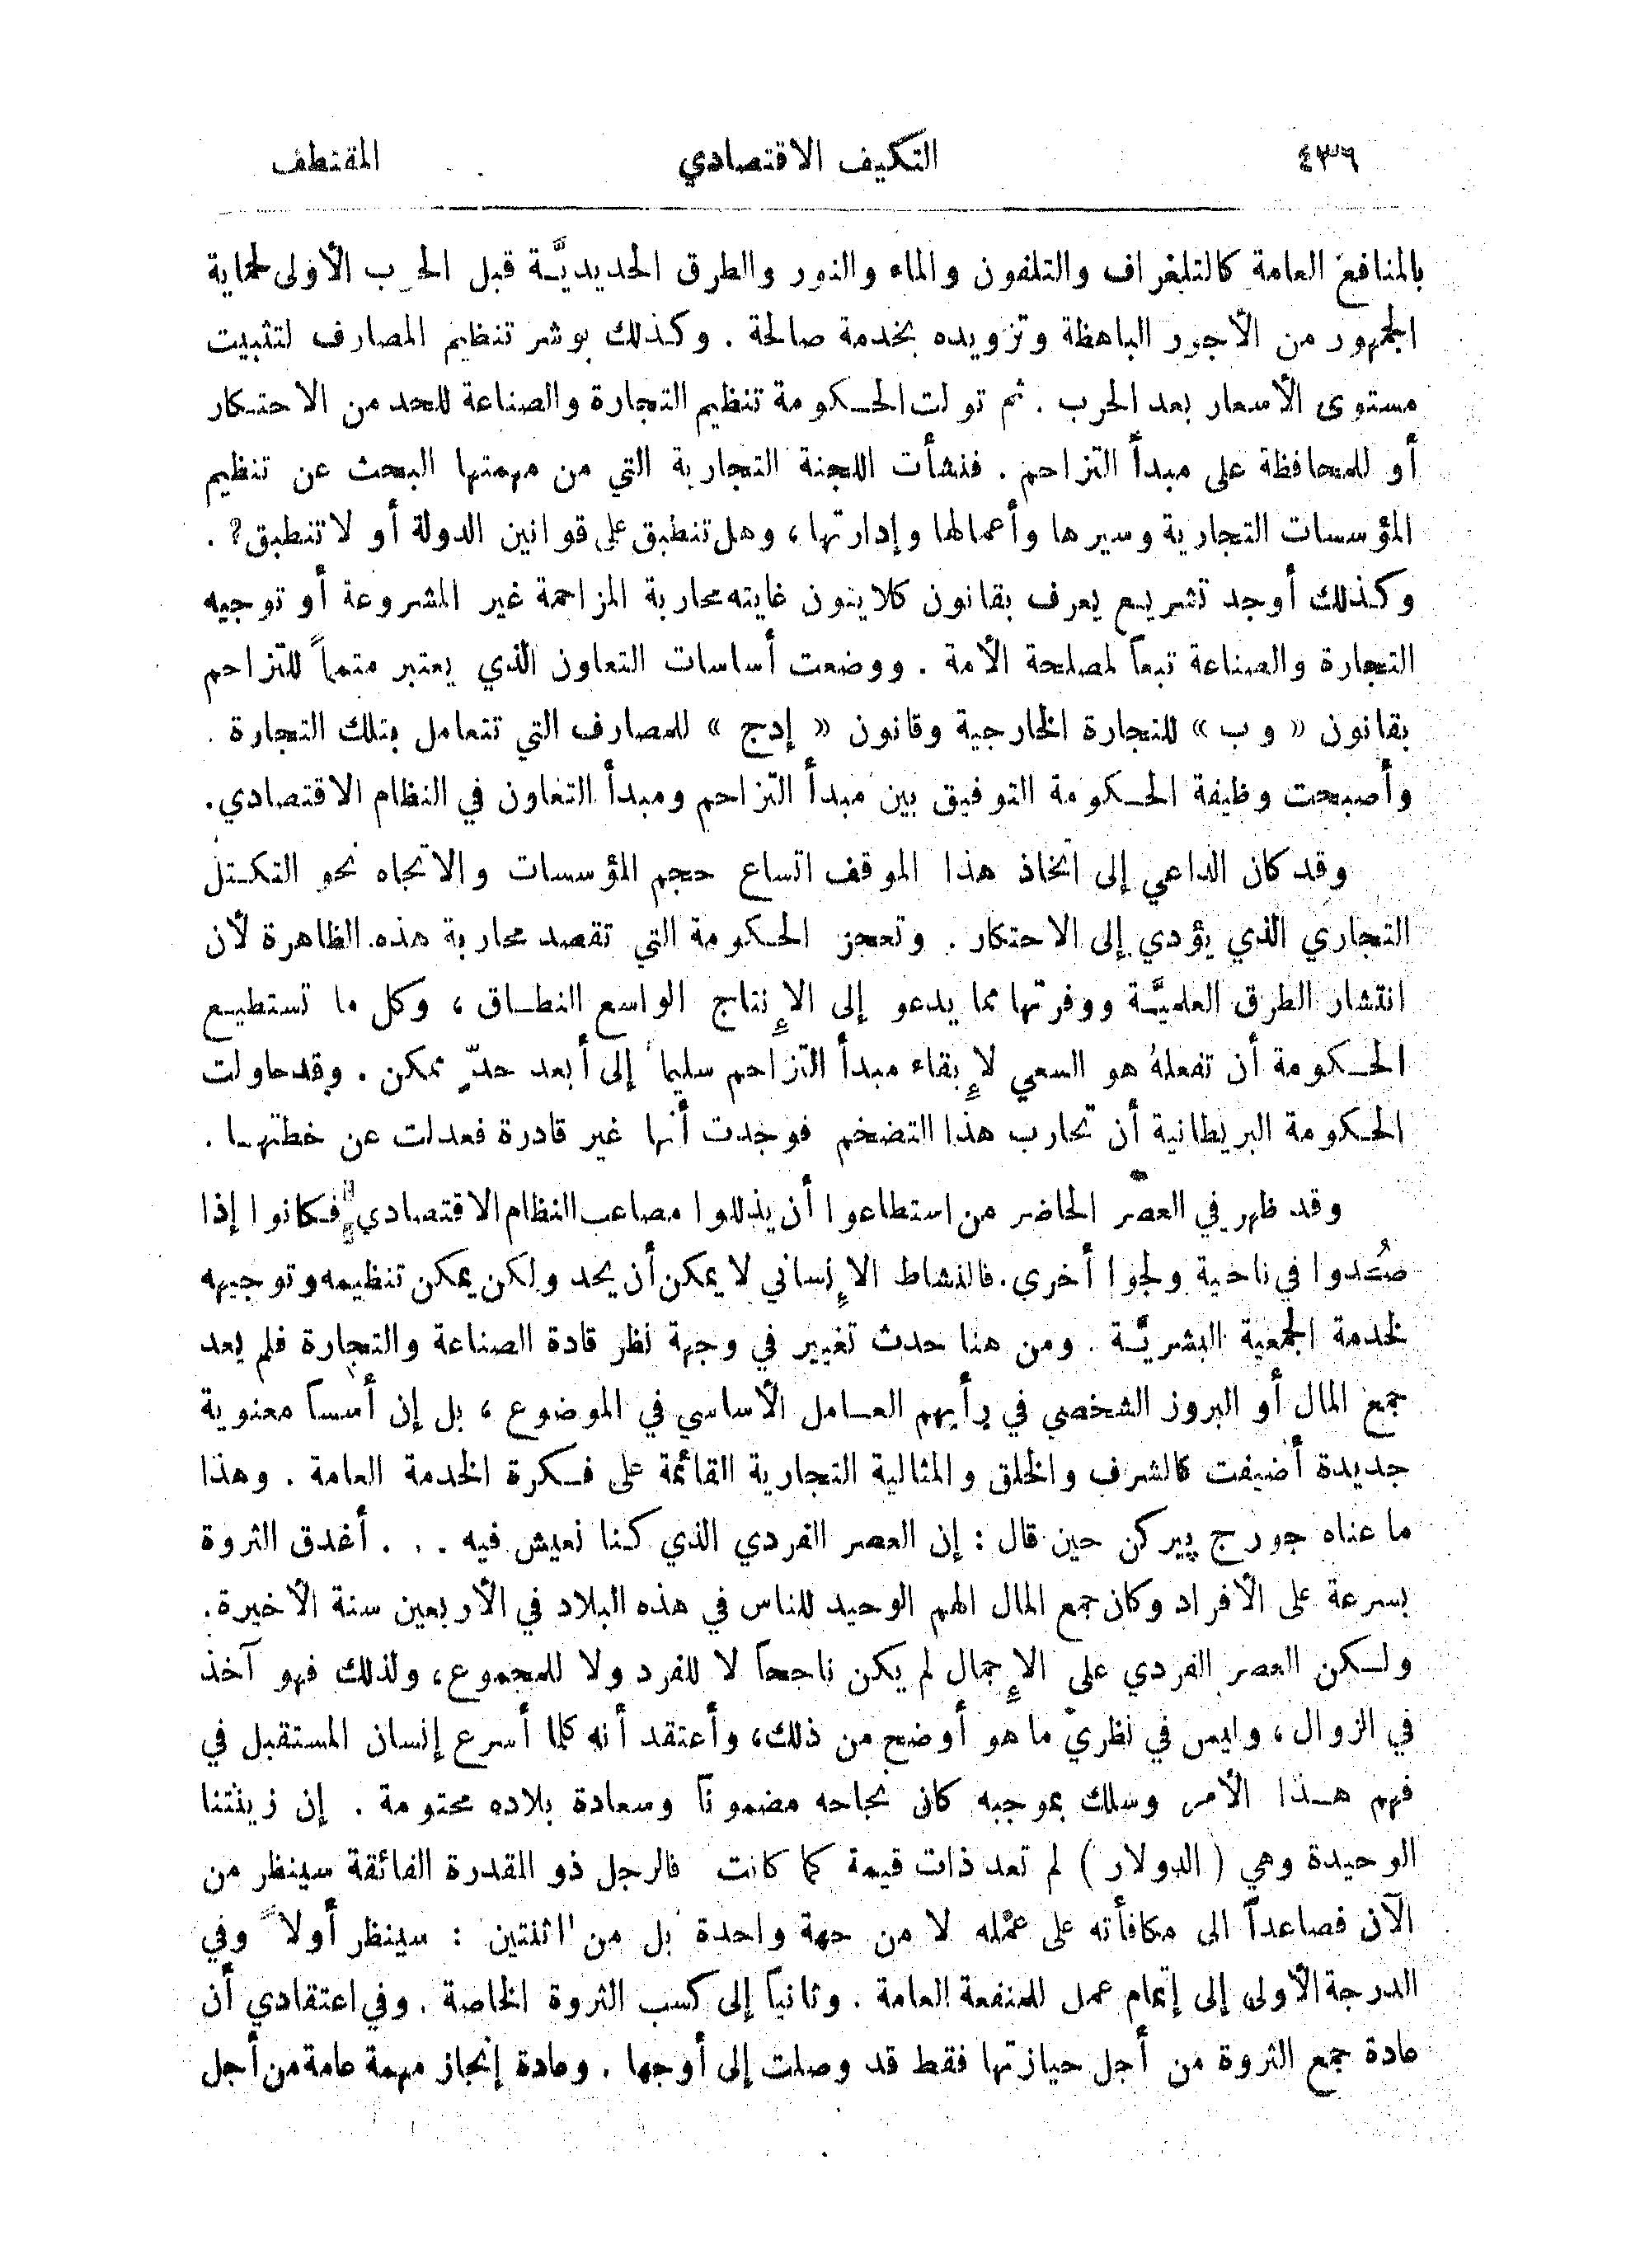 ٤٣٦ التكيف الاقتصادي المقتطف
بالمنافع العامة كالتلغراف والتلفون والماء والنور والطرق الحديديَّة قبل الحرب الأولى لحماية
الجمهور من الأجور الباهظة وتزويده بخدمة صالحة . وكذلك بوشر تنظيم المصارف لتثبيت
مستوى الأسعار بعد الحرب . ثم تولت الحكومة تنظيم التجارة والصناعة للحد من الاحتكار
أو للمحافظة على مبدأ التزاحم . فنشأت اللجنة التجارية التي من مهمتها البحث عن تنظيم
المؤسسات التجارية وسيرها وأعمالها وإدارتها ، وهل تنطبق على قوانين الدولة أو لا تنطبق؟ .
وكذلك أوجد تشريع يعرف بقانون كلايتون غايته محاربة المزاحمة غير المشروعة أو توجيه
التجارة والصناعة تبعاً لمصلحة الأمة . ووضعت أساسات التعاون الذي يعتبر متمماً للتزاحم
بقانون « وب » للتجارة الخارجية وقانون « إدج » للمصارف التي تتعامل بتلك التجارة .
وأصبحت وظيفة الحكومة التوفيق بين مبدأ التزاحم ومبدأ التعاون في النظام الاقتصادي .
وقد كان الداعي إلى اتخاذ هذا الموقف اتساع حجم المؤسسات والاتجاه نحو التكتل
التجاري الذي يؤدي إلى الاحتكار . وتعجز الحكومة التي تقصد محاربة هذه الظاهرة لأن
انتشار الطرق العلميَّة ووفرتها مما يدعو إلى الإنتاج الواسع النطاق ، وكل ما تستطيع
الحكومة أن تفعلهُ هو السعي لإبقاء مبدأ التزاحم سليماً إلى أبعد حدّ ممكن . وقد حاولت
الحكومة البريطانية أن تحارب هذا التضخم فوجدت أنها غير قادرة فعدلت عن خطتها .
وقد ظهر في العصر الحاضر من استطاعوا أن يذللوا مصاعب النظام الاقتصادي فكانوا إذا
صُدوا في ناحية ولجوا أخرى . فالنشاط الإنساني لا يمكن أن يحد ولكن يمكن تنظيمه وتوجيهه
لخدمة الجمعية البشريَّة . ومن هنا حدث تغيير في وجهة نظر قادة الصناعة والتجارة فلم يعد
جمع المال أو البروز الشخصي في رأيهم العامل الأساسي في الموضوع ، بل إن أسساً معنوية
جديدة أضيفت كالشرف والخلق والمثالية التجارية القائمة على فكرة الخدمة العامة . وهذا
ما عناه جورج پيركن حين قال : إن العصر الفردي الذي كنا نعيش فيه . . . أغدق الثروة
بسرعة على الأفراد وكان جمع المال الهم الوحيد للناس في هذه البلاد في الأربعين سنة الأخيرة .
ولكن العصر الفردي على الإجمال لم يكن ناجحاً لا للفرد ولا للمجموع ، ولذلك فهو آخذ
في الزوال ، وليس في نظريّ ما هو أوضح من ذلك ، وأعتقد أنه كلما أسرع إنسان المستقبل في
فهم هذا الأمر وسلك بموجبه كان نجاحه مضموناً وسعادة بلاده محتومة . إن زينتنا
الوحيدة وهي ( الدولار ) لم تعد ذات قيمة كما كانت فالرجل ذو المقدرة الفائقة سينظر من
الآن فصاعداً الى مكافأته على عمله لا من جهة واحدة بل من اثنتين : سينظر أولاً وفي
الدرجة الأولى إلى إتمام عمل للمنفعة العامة . وثانياً إلى كسب الثروة الخاصة . وفي اعتقادي أن
عادة جمع الثروة من أجل حيازتها فقط قد وصلت إلى أوجها . وعادة إنجاز مهمة عامة من أجل